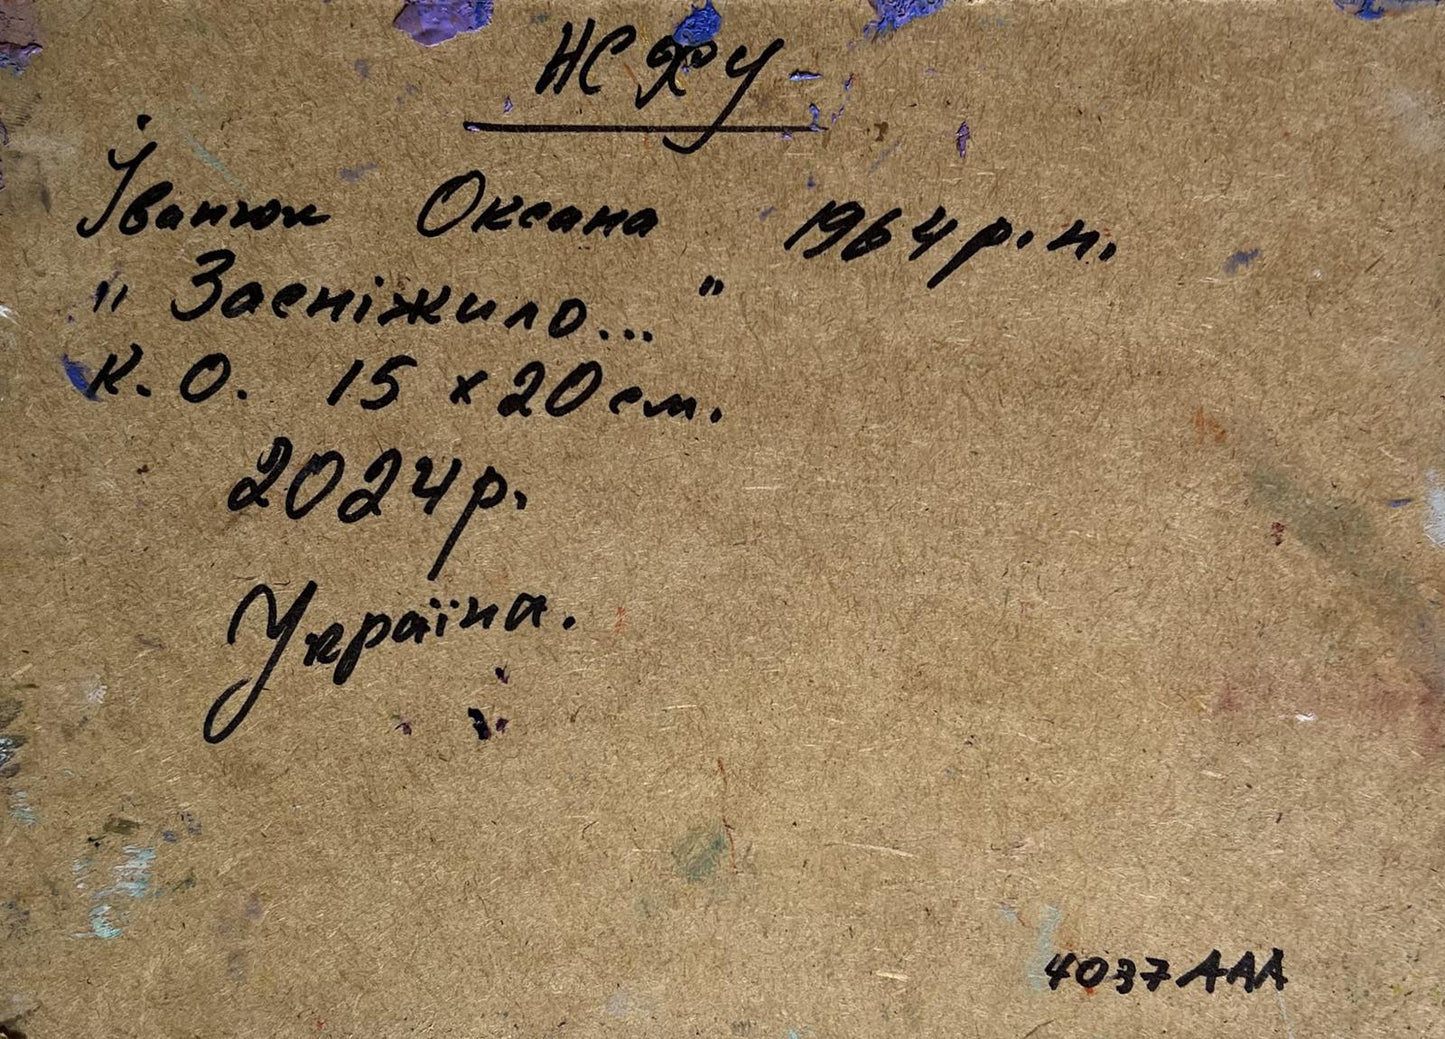 НСХУ
Іванюк Оксана 1964 р.н.
"Засніжило..."
К.О. 15 х 20 см.
2024 р.
Україна.
4037 ААА